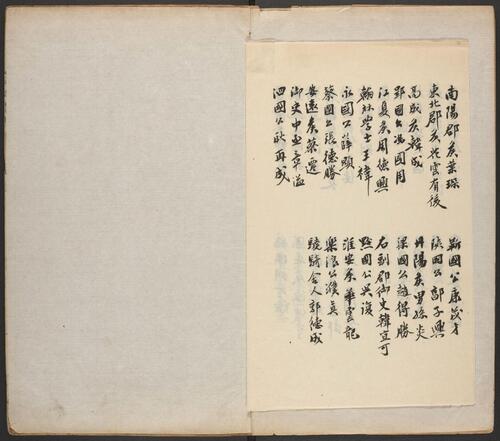 南陽郡侯葉琛
東北郡侯花雲有後
高成侯韓成
郢國公馮國用
江夏侯周德興
翰林學士王禕
永國公薛顯
蔡國公張德勝
安遠侯蔡遷
御史中丞章溢
泗國公耿再成
蘄國公康茂才
陝國公郭子興
丹陽侯曾孫炎
梁國公趙得勝
右副都御史韓宜可
黔國公吳復
淮安侯華雲龍
樂浪公濮真
驍騎舍人郭德成